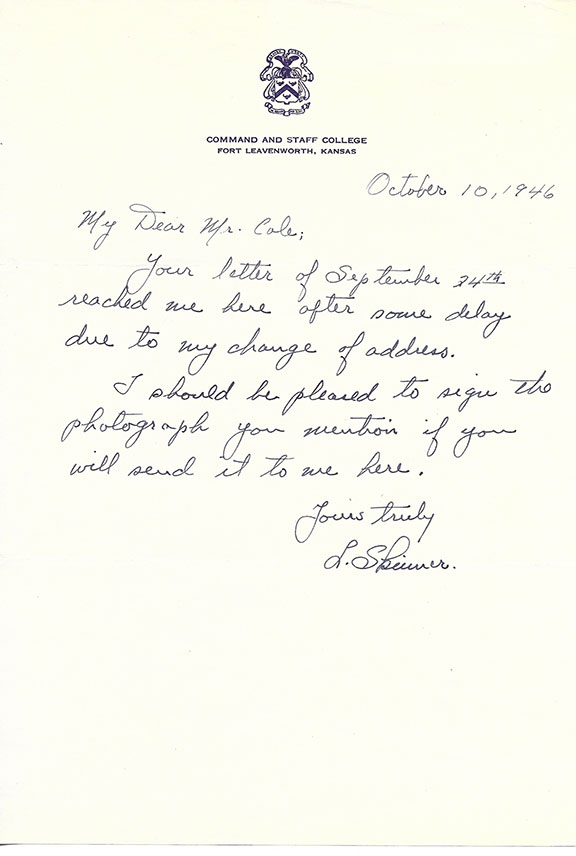 COMMAND AND STAFF COLLEGE
FORT LEAVENWORTH, KANSAS
October 10, 1946
My Dear Mr. Cole;
Your letter of September 24th
reached me here after some delay
due to my change of address.
I should be pleased to sign the
photograph you mention if you
will send it to me here.
Yours truly
L. Skinner.